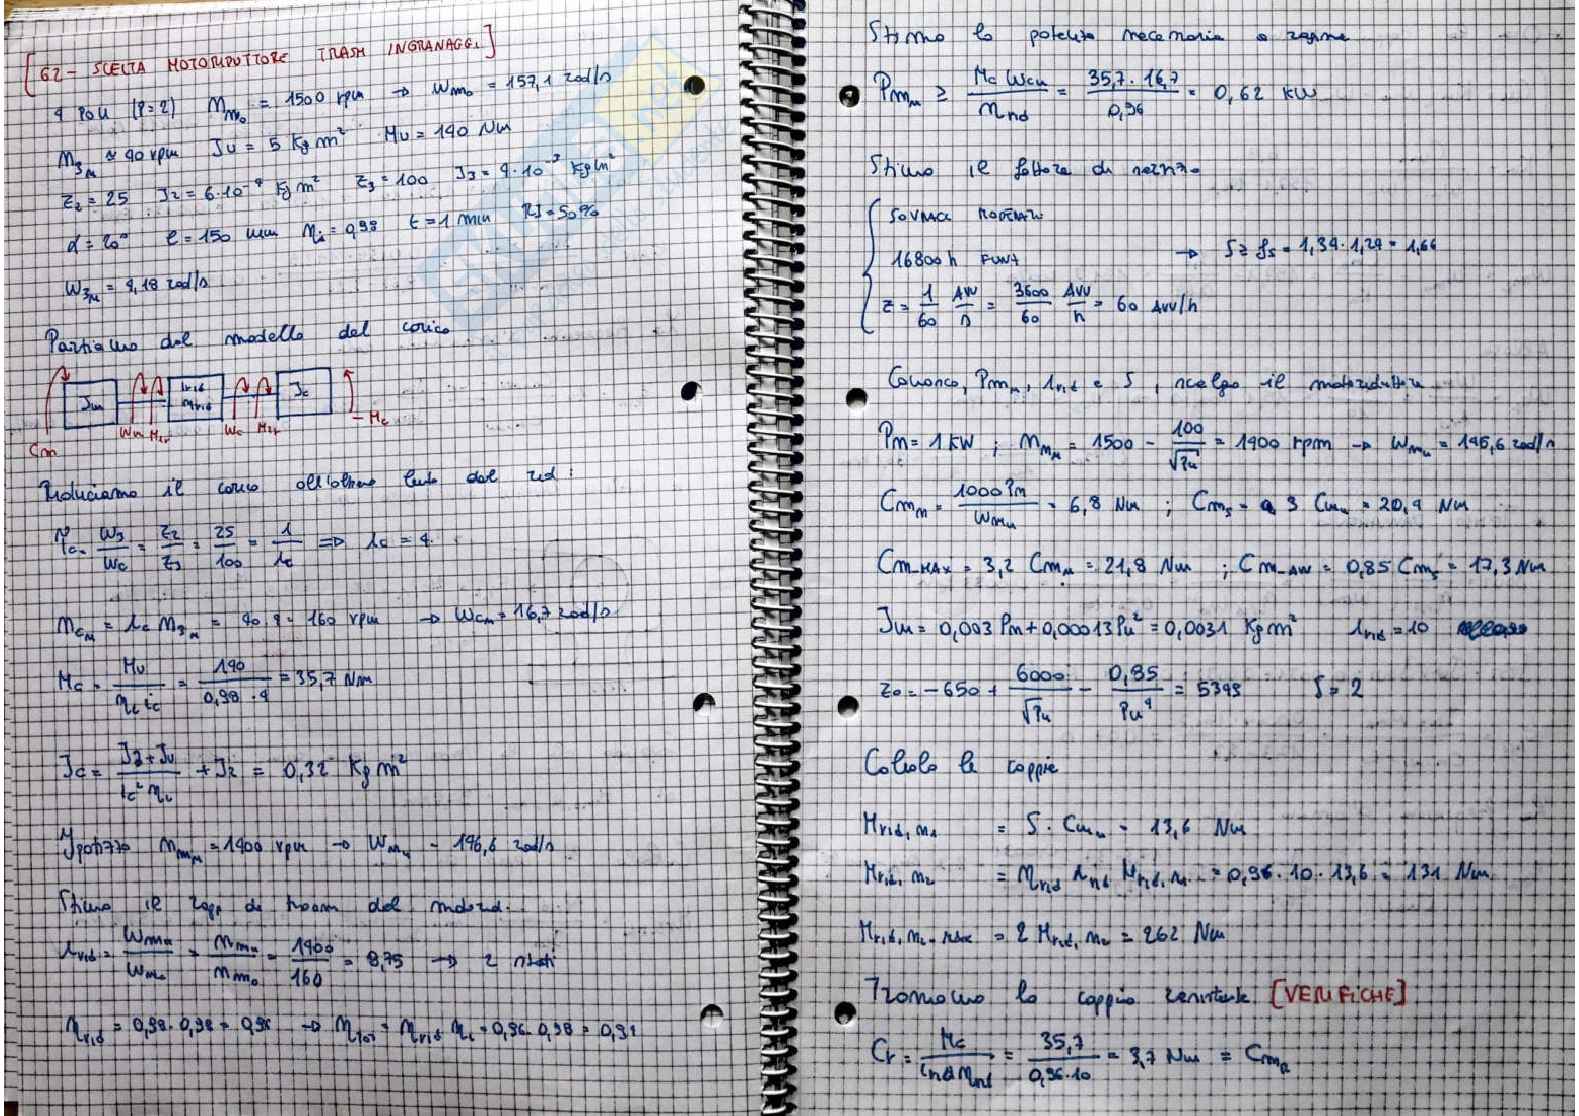 [62 - SCELTA MOTORIDUTTORE TRASM INGRANAGGI]
4 POLI (P=2) n_m0 = 1500 rpm → ω_m0 = 157,1 rad/s
n_3N ≈ 40 rpm J_U = 5 Kg m² M_U = 140 Nm
z_2 = 25 J_2 = 6·10⁻⁴ Kg m² z_3 = 100 J_3 = 4·10⁻³ Kg m²
α = 20° l = 150 mm η_i = 0,98 t = 1 min RI = 50%
ω_3N = 4,18 rad/s
Partiamo dal modello del carico
J_m i_rid η_rid J_c
C_m ω_m M_1r ω_c M_2r - M_c
Riduciamo il carico all'albero lento del rid:
τ_c = ω_3/ω_c = z_2/z_3 = 25/100 = 1/i_c ⇒ i_c = 4
n_cN = i_c n_3N = 40·4 = 160 rpm → ω_cN = 16,7 rad/s
M_c = M_U/(η_c i_c) = 140/(0,98·4) = 35,7 Nm
J_c = (J_3+J_U)/(i_c² η_c) + J_2 = 0,32 Kg m²
Ipotizzo n_mN = 1400 rpm → ω_mN = 146,6 rad/s
Stimo il rapp di trasm del motorid.
i_rid = ω_mN/ω_mc = n_mN/n_m0 = 1400/160 = 8,75 → 2 stadi
η_rid = 0,98·0,98 = 0,96 → η_tot = η_rid η_c = 0,96·0,98 = 0,94
Stimo la potenza necessaria a regime
P_mN ≥ M_c ω_cN/η_rid = 35,7·16,7/0,96 = 0,62 KW
Stimo il fattore di servizio
SOVRACC MODERATO
16800 h FUNZ → S ≥ f_s = 1,34·1,24 = 1,66
z = 1/60 AVV/s = 3600/60 AVV/h = 60 AVV/h
Conosco, P_mN, i_rid e S, scelgo il motoriduttore
P_m = 1 KW ; n_mN = 1500 - 100/√P_N = 1400 rpm → ω_mN = 146,6 rad/s
C_mN = 1000 P_m/ω_mN = 6,8 Nm ; C_ms = 3 C_mN = 20,4 Nm
C_m_MAX = 3,2 C_mN = 21,8 Nm ; C_m_AVV = 0,85 C_ms = 17,3 Nm
J_m = 0,003 P_m + 0,00013 P_N² = 0,0031 Kg m² i_rid = 10
z_0 = -650 + 6000/√P_N - 0,85/P_N⁴ = 5349 S = 2
Calcolo le coppie
M_rid,n1 = S · C_mN = 13,6 Nm
M_rid,n2 = η_rid i_rid M_rid,n1 = 0,96·10·13,6 = 131 Nm
M_rid,n2-MAX = 2 M_rid,n2 = 262 Nm
Troviamo la coppia resistente [VERIFICHE]
C_r = M_c/(i_rid η_rid) = 35,7/(0,96·10) = 3,7 Nm = C_mR